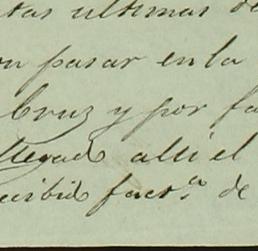 tas ultimas de
on pasar en la
Cruz y por fa
llegado alli el
recibió fact.ª de